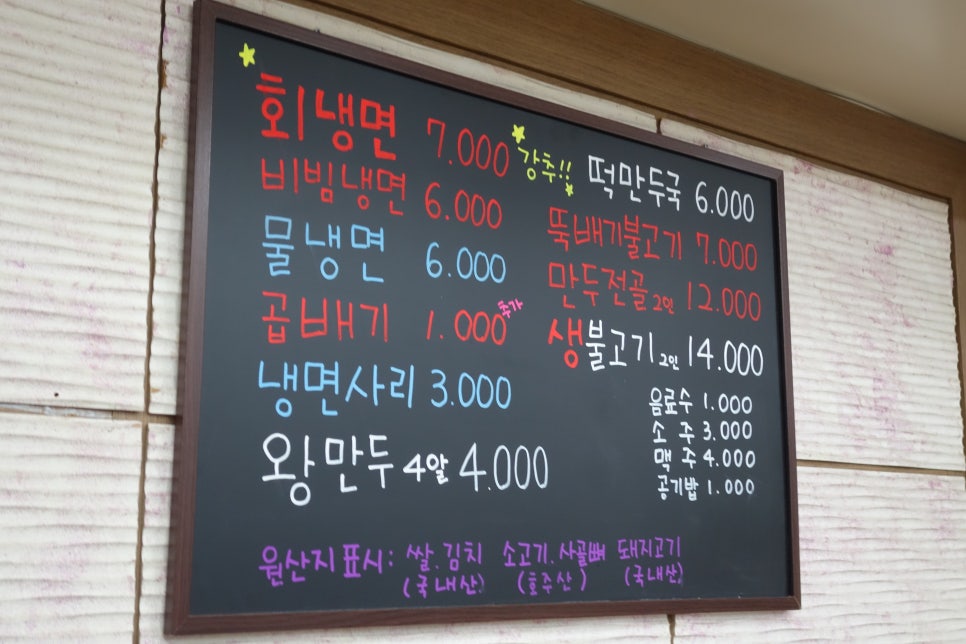 회냉면 7.000
비빔냉면 6.000
물냉면 6.000
곱배기 1.000 추가
냉면사리 3.000
왕만두 4알 4.000
강추!! 떡만두국 6.000
뚝배기불고기 7.000
만두전골 2인 12.000
생불고기 2인 14.000
음료수 1.000
소주 3.000
맥주 4.000
공기밥 1.000
원산지표시: 쌀.김치 소고기.사골뼈 돼지고기
(국내산) (호주산) (국내산)